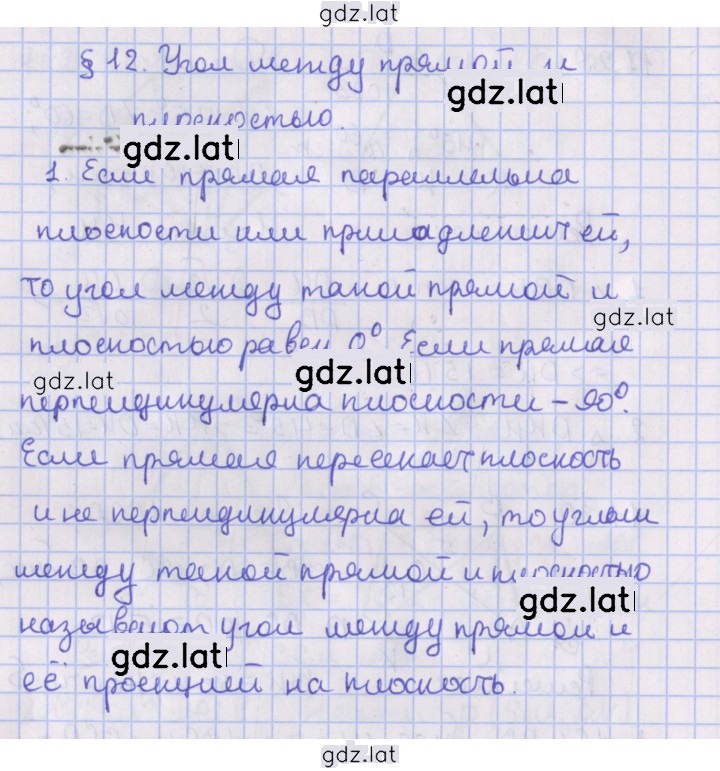 gdz.lat
§ 12. Угол между прямой и
gdz.lat
плоскостью.
gdz.lat
1. Если прямая параллельна
плоскости или принадлежит ей,
то угол между такой прямой и
gdz.lat
плоскостью равен 0°. Если прямая
gdz.lat
gdz.lat
перпендикулярна плоскости – 90°.
Если прямая пересекает плоскость
и не перпендикулярна ей, то углом
между такой прямой и плоскостью
gdz.lat
называют угол между прямой и
gdz.lat
её проекцией на плоскость.
gdz.lat